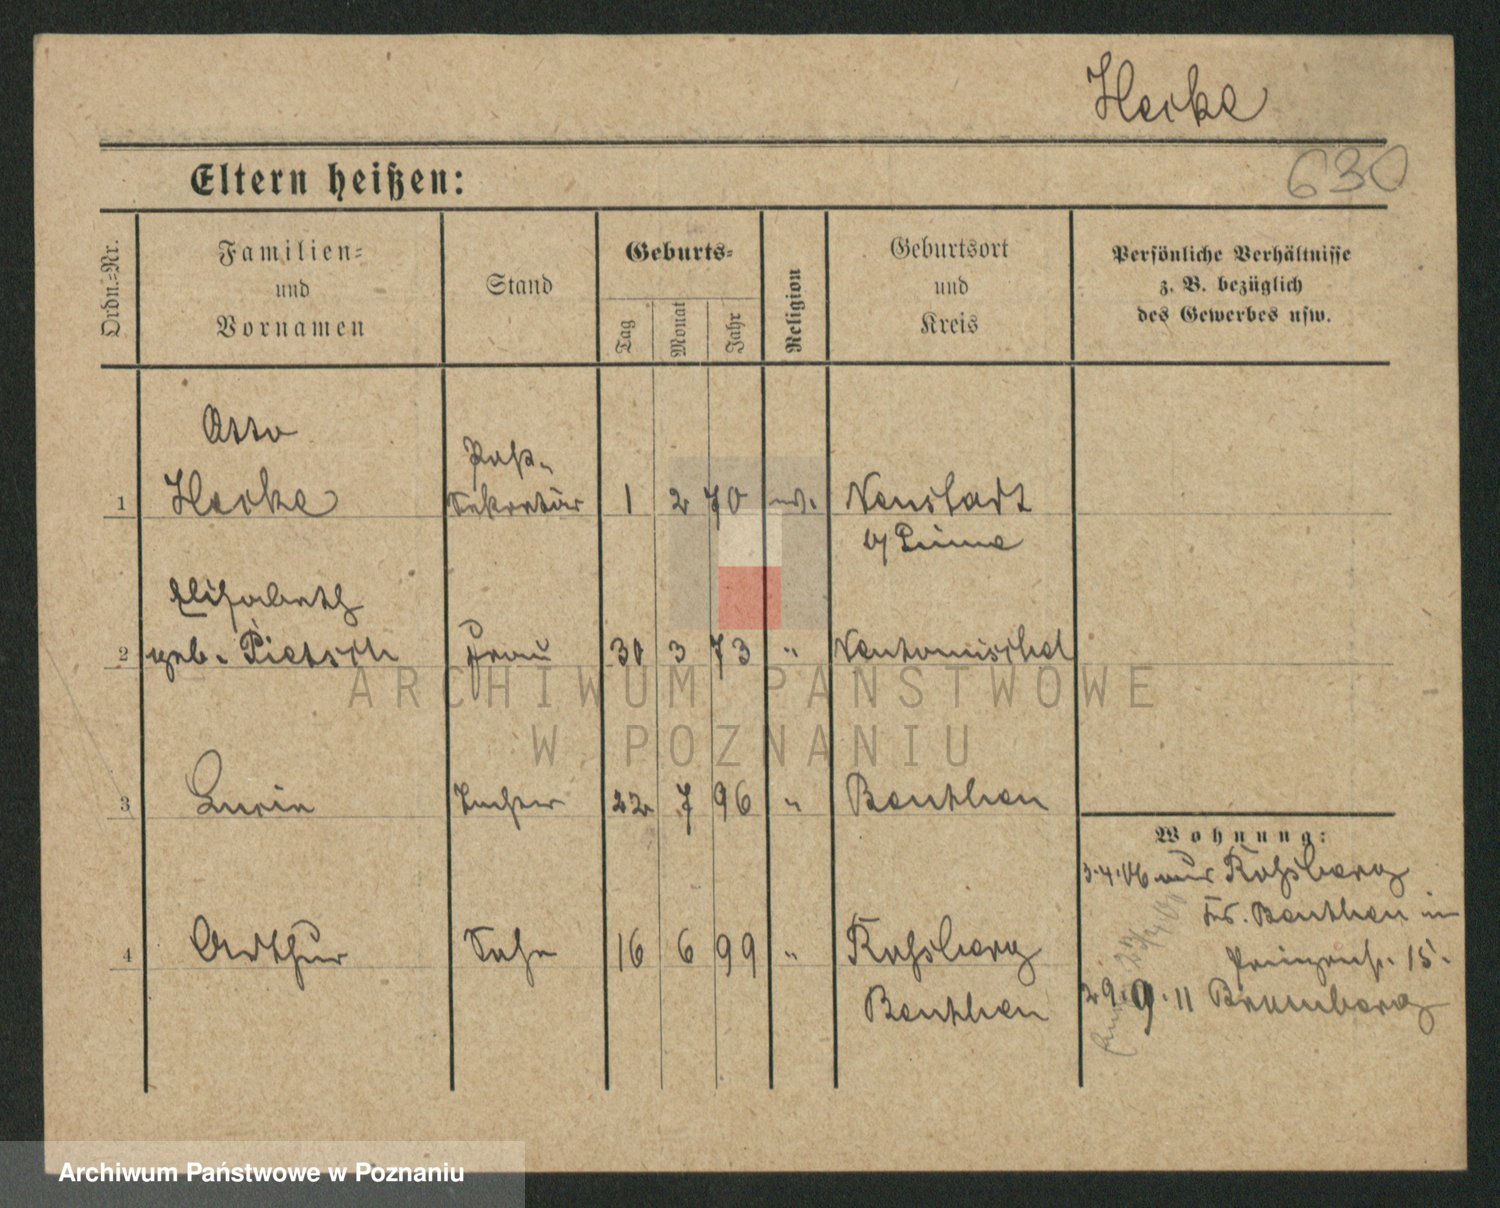 Hecke
630
Eltern heißen:
Ordn.=Nr.
Familien=
und
Vornamen
Stand
Geburts=
Tag
Monat
Jahr
Religion
Geburtsort
und
Kreis
Persönliche Verhältnisse
z. B. bezüglich
des Gewerbes usw.
Otto
Post-
1 Hecke Sekretär 1 2 70 Neustadt
b/ Pinne
Elisabeth
2 geb. Pietsch Frau 30 3 73 " Neutomischel
3 Lucie Tochter 22 7 96 " Beuthen
Wohnung:
3.4.06 aus Roßberg
Krs. Beuthen in
4 Arthur Sohn 16 6 99 " Roßberg
Prinzenstr. 15.
Beuthen
29.9.11 Bromberg
ARCHIWUM PAŃSTWOWE
W POZNANIU
Archiwum Państwowe w Poznaniu